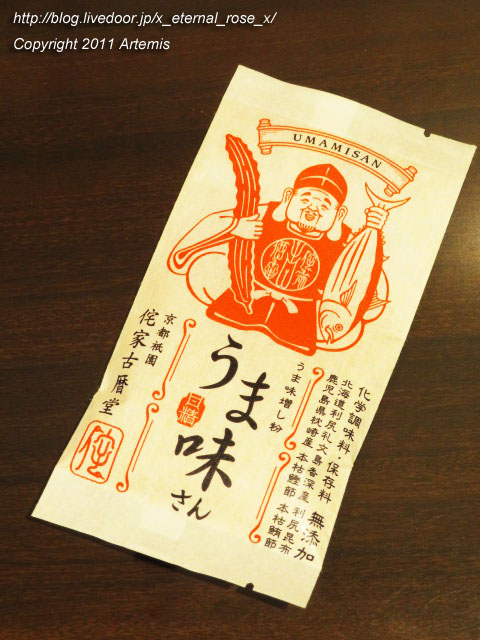 http://blog.livedoor.jp/x_eternal_rose_x/
Copyright 2011 Artemis
UMAMISAN
化学調味料・保存料 無添加
北海道利尻礼文島香深産 利尻昆布
鹿児島県枕崎産 本枯鰹節 本枯鮪節
うま味増し粉
うま味さん
京都祇園
侘家古暦堂
侘